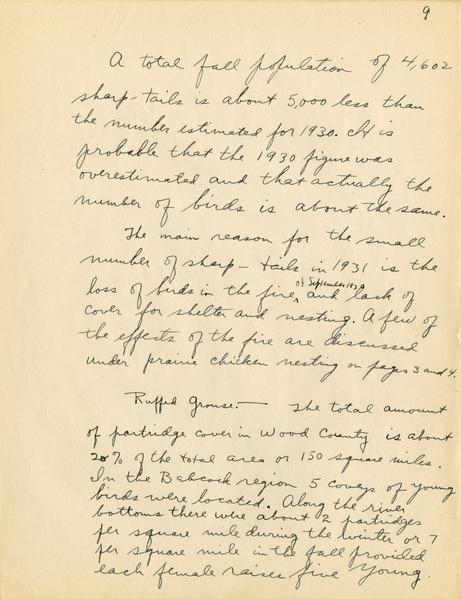 9
A total fall population of 4,602
sharp-tails is about 5,000 less than
the number estimated for 1930. It is
probable that the 1930 figure was
overestimated and that actually the
number of birds is about the same.
The main reason for the small
number of sharp-tails in 1931 is the
of September 1930
loss of birds in the fire, and lack of
cover for shelter and nesting. A few of
the effects of the fire are discussed
under prairie chicken nesting on pages 3 and 4.
Ruffed Grouse:— The total amount
of partridge cover in Wood County is about
20% of the total area or 150 square miles.
In the Babcock region 5 coveys of young
birds were located. Along the river
bottoms there were about 2 partridges
per square mile during the winter or 7
per square mile in the fall provided
each female raises five young.